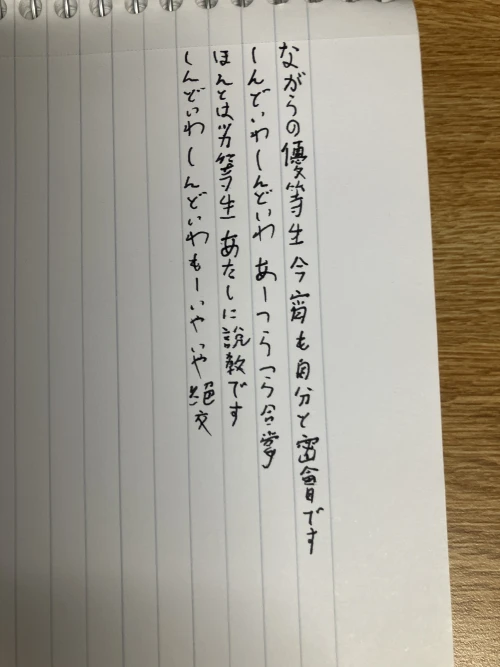 ながらの優等生 今宵も自分と密會です
しんどいわしんどいわ あーつらつら合夢
ほんとは劣等生 あたしに説教です
しんどいわ しんどいわ もーいやいや絶交